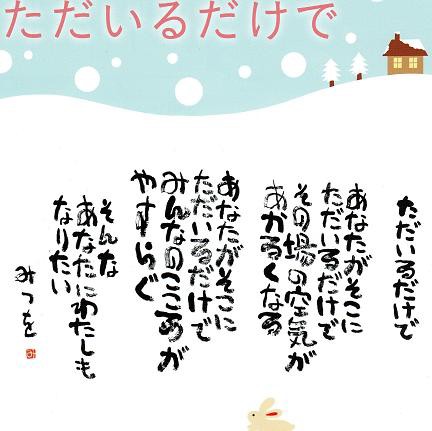 ただいるだけで
ただいるだけで
あなたがそこに
ただいるだけで
その場の空気が
あかるくなる
あなたがそこに
ただいるだけで
みんなのこころが
やすらぐ
そんな
あなたにわたしも
なりたい
みつを
み